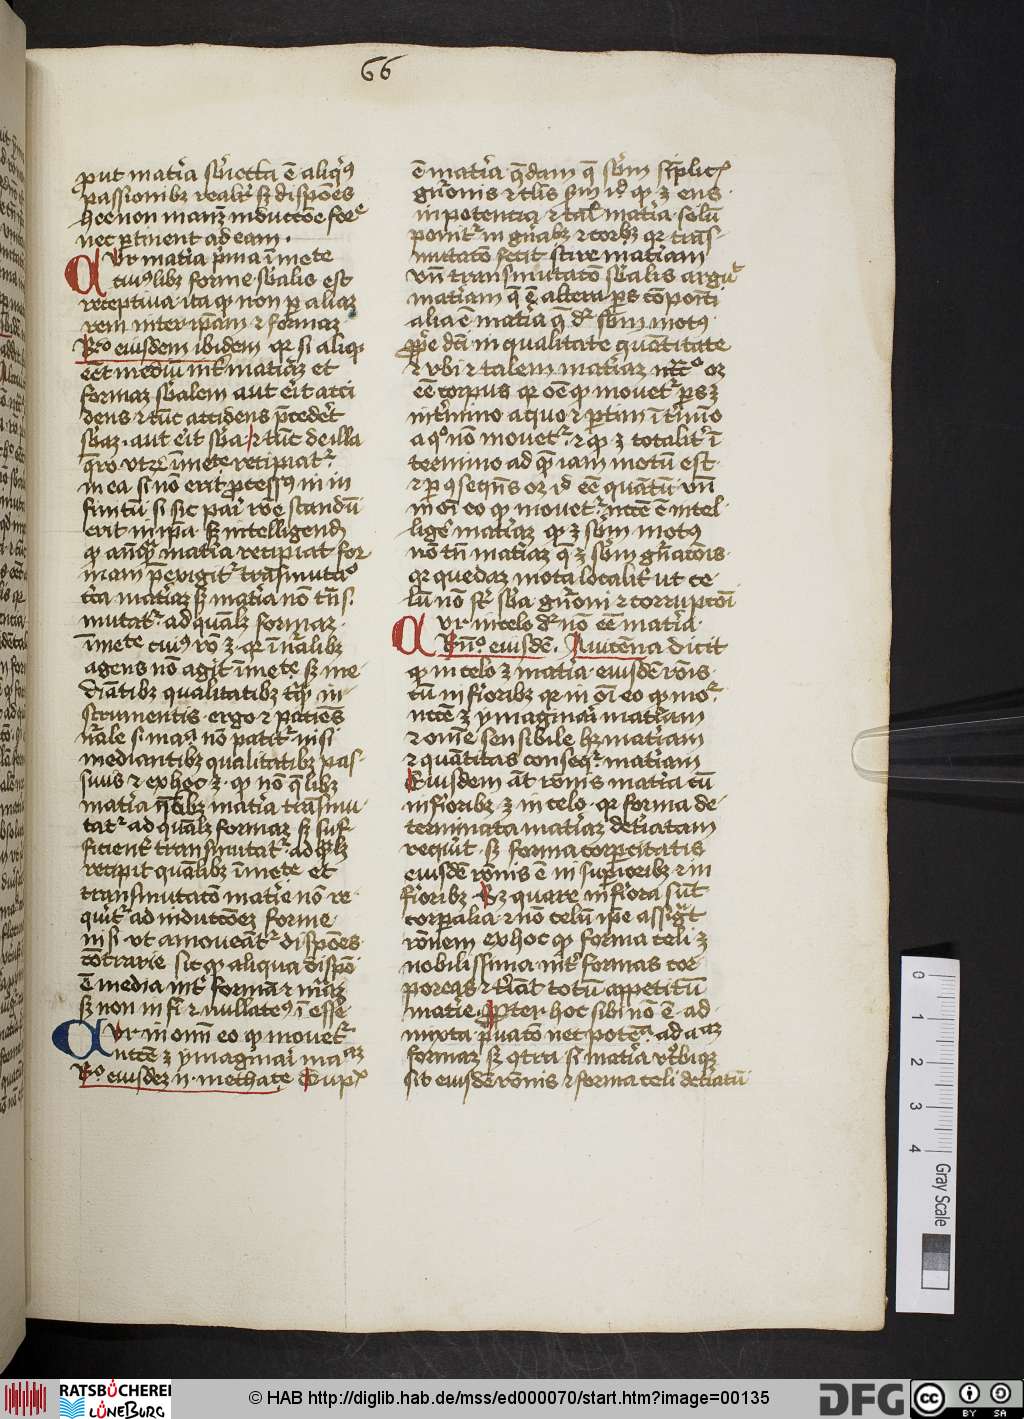 66
put mat̅ia sb̅iecta e̅ aliqͥbꝰ
passionibꝫ realit̉ sꝫ dispo̅es
hee non manꝫ inductio̅e for̅e
nec ꝑtinent ad eam ·
Cur mat̅ia p̅ma i̅mete
cuiꝰlibꝫ forme sb̅alis est
receptiua ita qꝫ non ꝑ aliaꝫ
rem inter ip̅am ⁊ formaꝫ
Rͦ eiusdem ibidem qꝛ si aliqꝫ
eet mediu̅ int̉ mat̅iaꝫ et
formaꝫ sb̅alem aut e̅it acci
dens ⁊ tu̅c accidens p̅cedet
sb̅aꝫ · aut e̅it sb̅a ⁊ tu̅c de illa
q̅ro vtꝝ i̅mete recipiat᷑
in ea si no̅ erit ꝓcessꝰ in in
finitu̅ si sic pari ro̅e standu̅
erit in ip̅a sꝫ intelligend̅
qꝫ mat̅ia recipiat for
mam p̅exigit᷑ tra̅smutaͦ
mat̅iaꝫ sꝫ mat̅ia no̅ tn̅s
mutat᷑ ad qual̅ꝫ formaꝫ
i̅mete cuiꝰ ro̅ ꝫ qꝛ i̅ n̅alibꝫ
agens no̅ agit i̅mete sꝫ me
dia̅tibꝫ qualitatibꝫ tqͣꝫ in
strumentis ergo ⁊ patie̅s
n̅ale no̅ patit᷑ nisi
mediantibꝫ qualitatibꝫ pas
suis ⁊ ex hoc ꝫ qꝫ no̅ q̅libꝫ
mat̅ia mat̅ia tra̅smu
tat᷑ ad qual̅ꝫ formaꝫ sꝫ suf
ficient̉ transmutat᷑ ad
recipit i̅mete et
transmutato̅ mat̅ie no̅ re
quirit᷑ ad inductio̅eꝫ forme
nisi vt amouea̅t᷑ dispo̅es
co̅trarie sic qꝫ aliqua dispo̅
e̅ media int̉ forma̅ ⁊ m̅aꝫ
sꝫ non in fi̅ ⁊ nullatenꝰ i̅ esse
Cur in omni eo qꝫ mouet᷑
ncce̅ ꝫ ymaginari maͣꝫ
Rͦ eiusdeꝫ methace Cu
e̅ mat̅ia qͣdam q̅ sb̅m simplic᷑
gn̅onis ⁊ tl̅is id̅ qꝫ ꝫ ens
in potencia ⁊ tal̅ mat̅ia solu̅
ponit᷑ in gn̅abꝫ ⁊ corꝫ qꝛ tra̅s
mutato̅ fecit scire mat̅iam
vn̅ transmutato̅ sb̅alis arguit᷑
mat̅iam q̅ e̅ altera ps co̅positi
alia e̅ mat̅ia q̅ d᷑ sb̅m motꝰ
ꝓpe̅ dc̅i in qualitate quantitate
⁊ vbi ⁊ talem mat̅iaꝫ oꝫ
ee̅ corpus qꝛ oe̅ qꝫ mouet᷑ ps ꝫ
in t̉mino a quo ⁊ ps tam i̅ t̉mi̅o
a qͦ no̅ mouet᷑ ⁊ qꝫ ꝫ totalit̉ i̅
termino ad que̅ iam motu̅ est
⁊ ꝑ ꝯseque̅s oꝫ id̅ ee̅ quantu̅ vn̅
in oi̅ eo qꝫ mouet᷑ ncce̅ e̅ intel
lige̅ mat̅iaꝫ qꝫ ꝫ sb̅m motꝰ
no̅ tn̅ mat̅iaꝫ q̅ ꝫ sb̅m gn̅aro̅is
qꝛ quedaꝫ mota localit̉ ut ce
lu̅ no̅ st̅ sb̅a gn̅oni ⁊ corruptio̅i
Cur in celo d᷑ no̅ ee̅ mat̅ia
Rn̅ͦ eiusde̅ · Auicen̅a dicit
qꝫ in celo ꝫ mat̅ia eiusde̅ ro̅is
cu̅ in fi̅oribꝫ qꝛ in oi̅ eo qꝫ mo᷑
ncce̅ ꝫ ymaginari mat̅iam
⁊ om̅e sensibile hꝫ mat̅iam
⁊ quantitas conseq᷑ mat̅iam
Eiusdem at̅ ro̅nis mat̅ia cu̅
in fi̅oribꝫ ꝫ in celo qꝛ forma de
terminata mat̅iaꝫ det̉i̅atam
requirit sꝫ forma corpeitatis
eiusde̅ ro̅nis e̅ in suꝑioribꝫ ⁊ in
fi̅oribꝫ Sꝫ quare in fi̅ora sunt
corpalia ⁊ no̅ celu̅ ip̅e assigt
ro̅nem ex hoc qꝫ forma celi ꝫ
nobilissima int̉ formas cor
poreas ⁊ totu̅ appetitu̅
mat̅ie ꝓpter hoc sibi no̅ e̅ ad
mixta p̅uato̅ nec pote̅ͣ ad aͣꝫ
formaꝫ sꝫ ꝯtra si mat̅ia vt̉biqꝫ
sit eiusde̅ ro̅nis ⁊ forma celi det̉i̅atu̅
0
1
2
3
4
Gray Scale
RATSBÜCHEREI
LÜNEBURG
© HAB http://diglib.hab.de/mss/ed000070/start.htm?image=00135
DFG
cc
BY SA